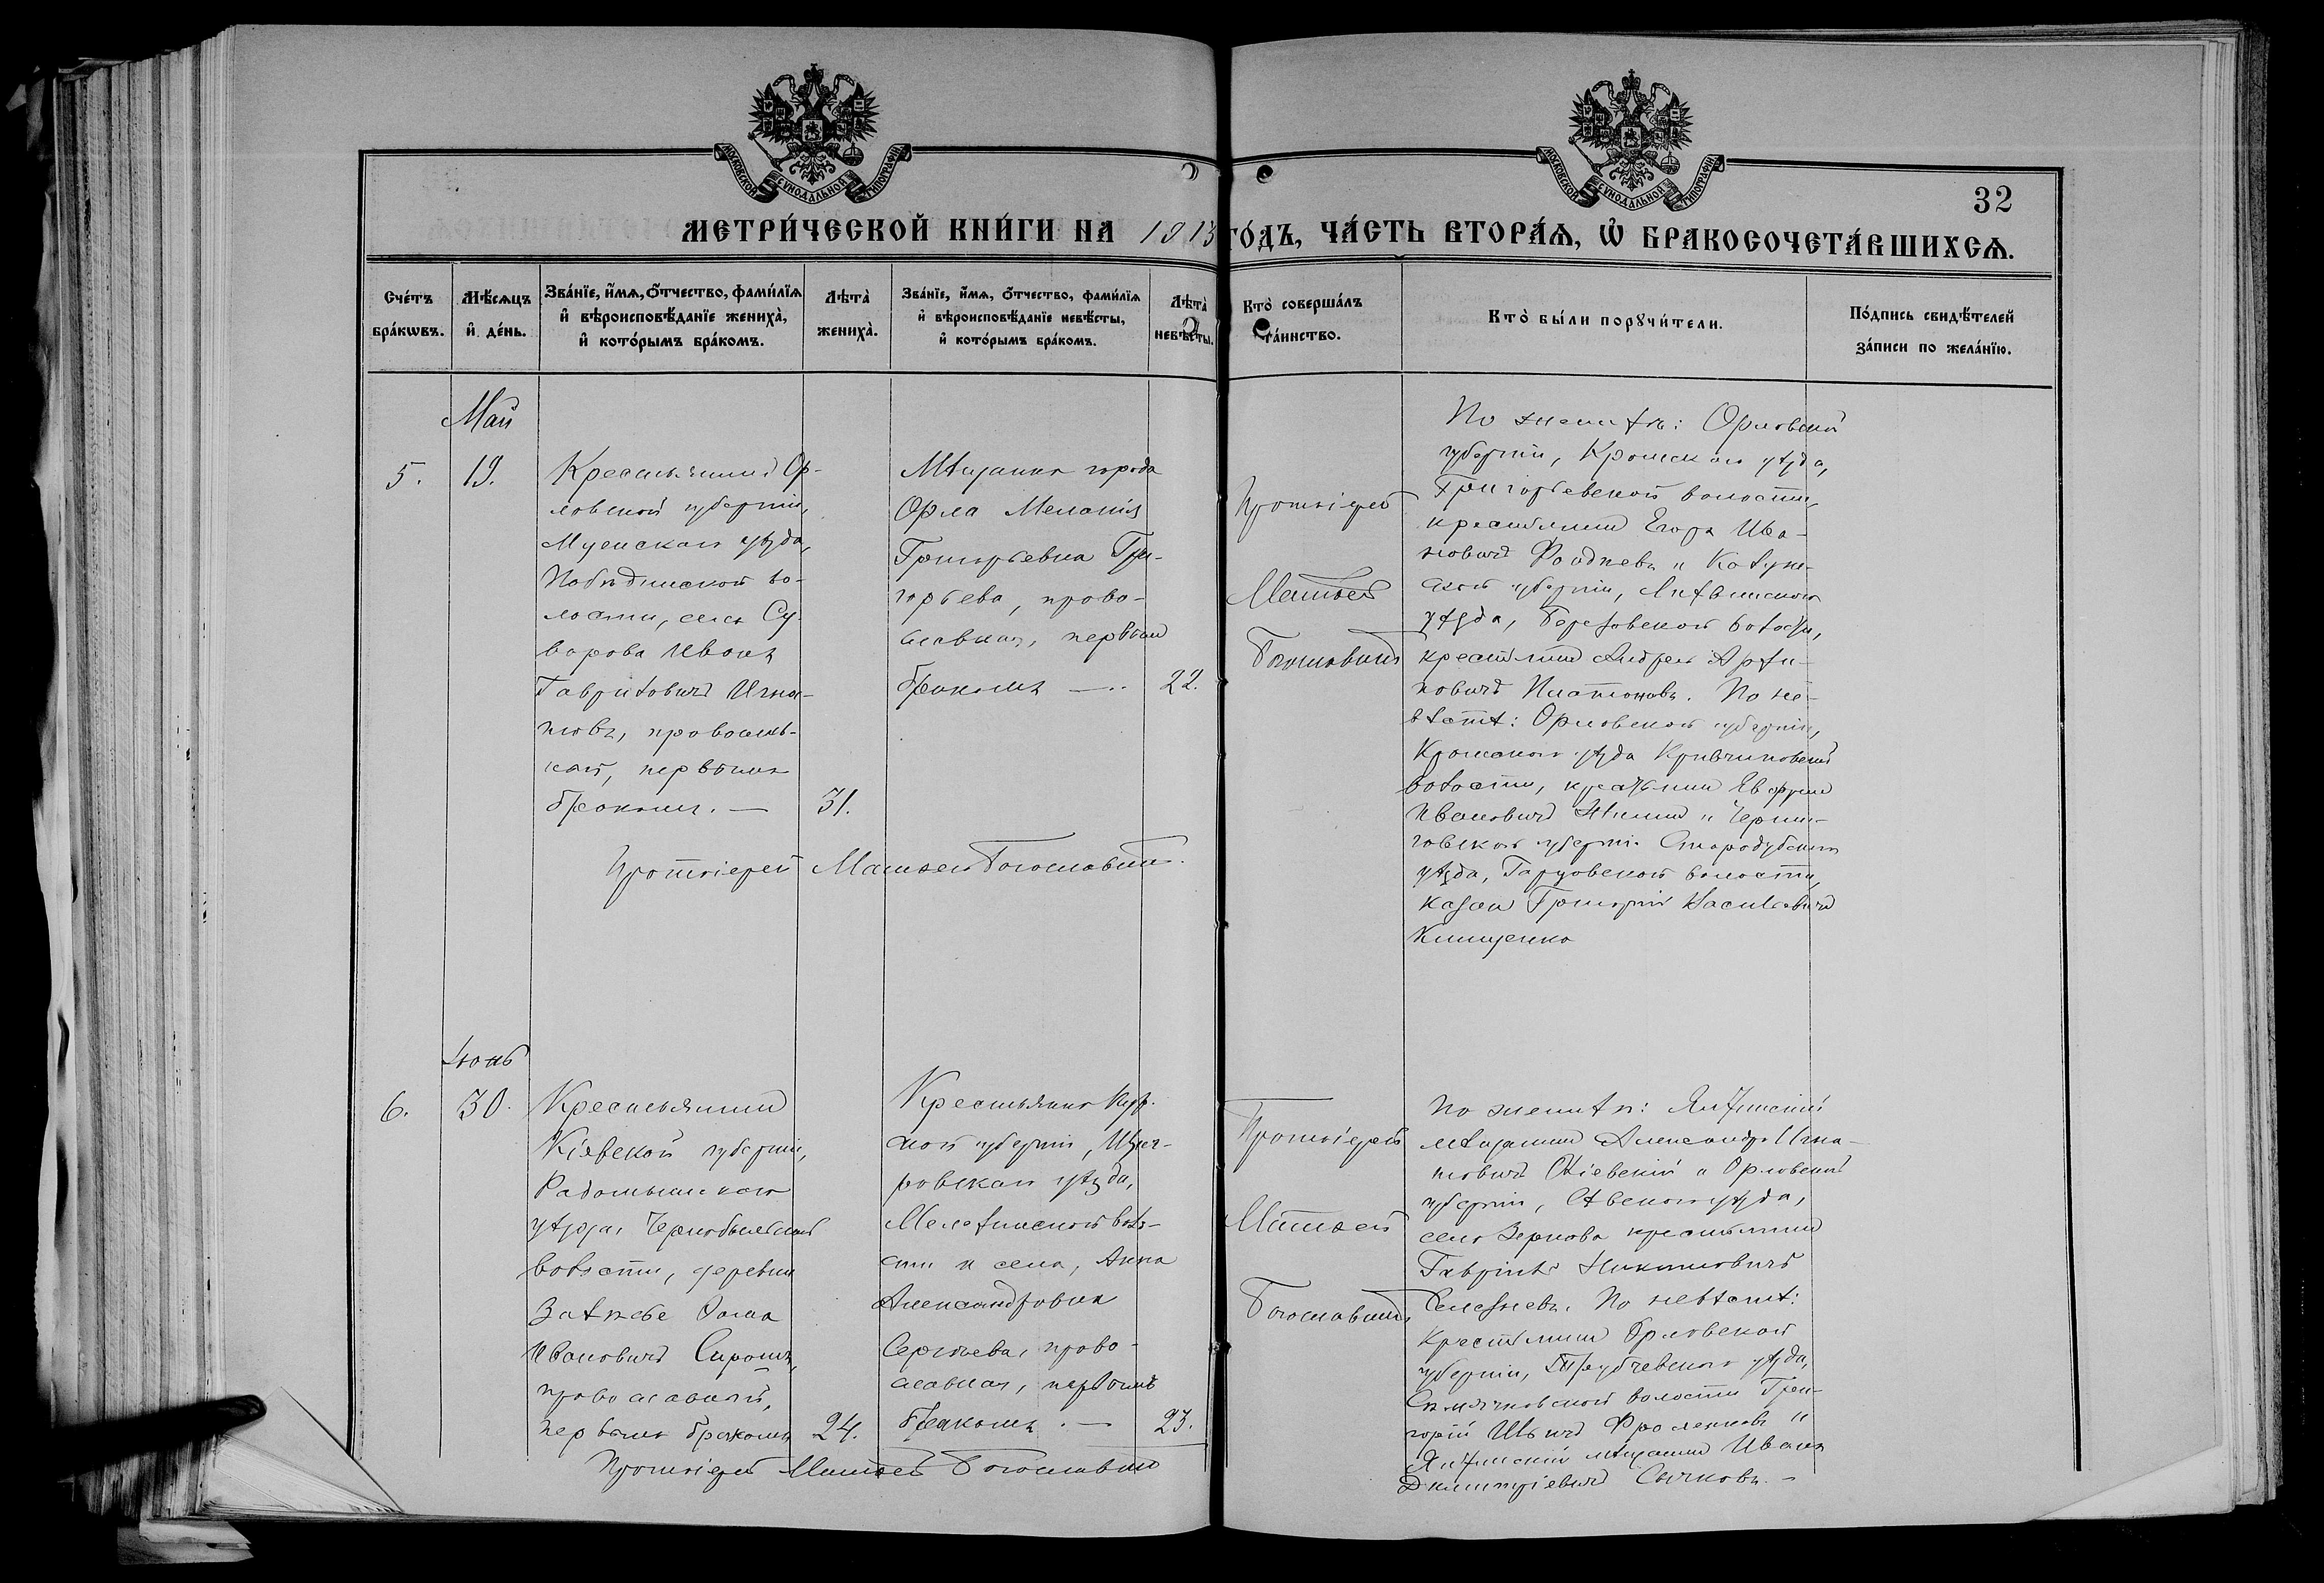 МОСКОВСКОЙ СѴНОДАЛЬНОЙ ТИПОГРАФІИ
МОСКОВСКОЙ СѴНОДАЛЬНОЙ ТИПОГРАФІИ
32
МЕТРИ́ЧЕСКОЙ КНИ́ГИ НА 1913 ГО́ДЪ, ЧА́СТЬ ВТОРА́Ѧ, Ѡ҆ БРАКОСОЧЕТА́ВШИХСѦ.
Сче́тъ
бра́кѡвъ.
Мѣ́сѧцъ
и҆ де́нь.
Зва́нїе, и҆́мѧ, ѻ҆́тчество, фами́лїѧ
и҆ вѣроисповѣ́данїе жениха̀,
и҆ кото́рымъ бра́комъ.
Лѣта̀
жениха̀.
Зва́нїе, и҆́мѧ, ѻ҆́тчество, фами́лїѧ
и҆ вѣроисповѣ́данїе невѣ́сты,
и҆ кото́рымъ бра́комъ.
Лѣта̀
невѣ́сты.
Кто̀ соверша́лъ
та́инство.
Кто̀ бы́ли порꙋчи́тели.
По́дпись свидѣ́телей
за́писи по жела́нїю.
Май
5.
19.
Крестьянинъ Ор-
ловской губерніи,
Мценскаго уѣзда,
во-
лости, села Су-
ворова Иванъ
Гавриловичъ Игна-
товъ, православ-
ный, первымъ
бракомъ. —
31.
Мѣщанка города
Орла Меланія
Григорьевна Гри-
горьева, право-
славная, первымъ
бракомъ —
22.
Протоіерей
Матѳей
Богословскій
По женихѣ: Орловской
губерніи, Кромскаго уѣзда,
волости,
крестьянинъ Егоръ Ива-
новичъ и Калуж-
ской губерніи, Лихвинскаго
уѣзда, Березовской волости,
крестьянинъ Андрей
Платоновъ. По не-
вѣстѣ: Орловской губерніи,
Кромскаго уѣзда Кривчиковской
волости, крестьянинъ
Ивановичъ и Черни-
говской губерніи Стародубскаго
уѣзда, волости,
казакъ Григорій Васильевичъ
Клищенко
Протоіерей Матѳей Богословскій.
Іюнь
6.
30.
Крестьянинъ
Кіевской губерніи,
Радомысльскаго
уѣзда, Чернобыльской
волости, деревни
Залѣсье Фома
Ивановичъ Сирошъ,
православный,
первымъ бракомъ
24.
Крестьянка Кур-
ской губерніи, Щиг-
ровскаго уѣзда,
воло-
сти и села, Анна
Александровна
Сергѣева, право-
славная, первымъ
бракомъ. —
23.
Протоіерей
Матѳей
Богословскій
По женихѣ: Ялтинскій
мѣщанинъ Александръ Игна-
товичъ и Орловской
губерніи, Сѣвскаго уѣзда,
села Зернова крестьянинъ
Гавріилъ
Селезневъ. По невѣстѣ:
Крестьянинъ Орловской
губерніи, Трубчевскаго уѣзда,
волости Гри-
горій Ильичъ Фроленковъ и
Ялтинскій мѣщанинъ Иванъ
Дмитріевичъ Сычковъ. —
Протоіерей Матѳей Богословскій